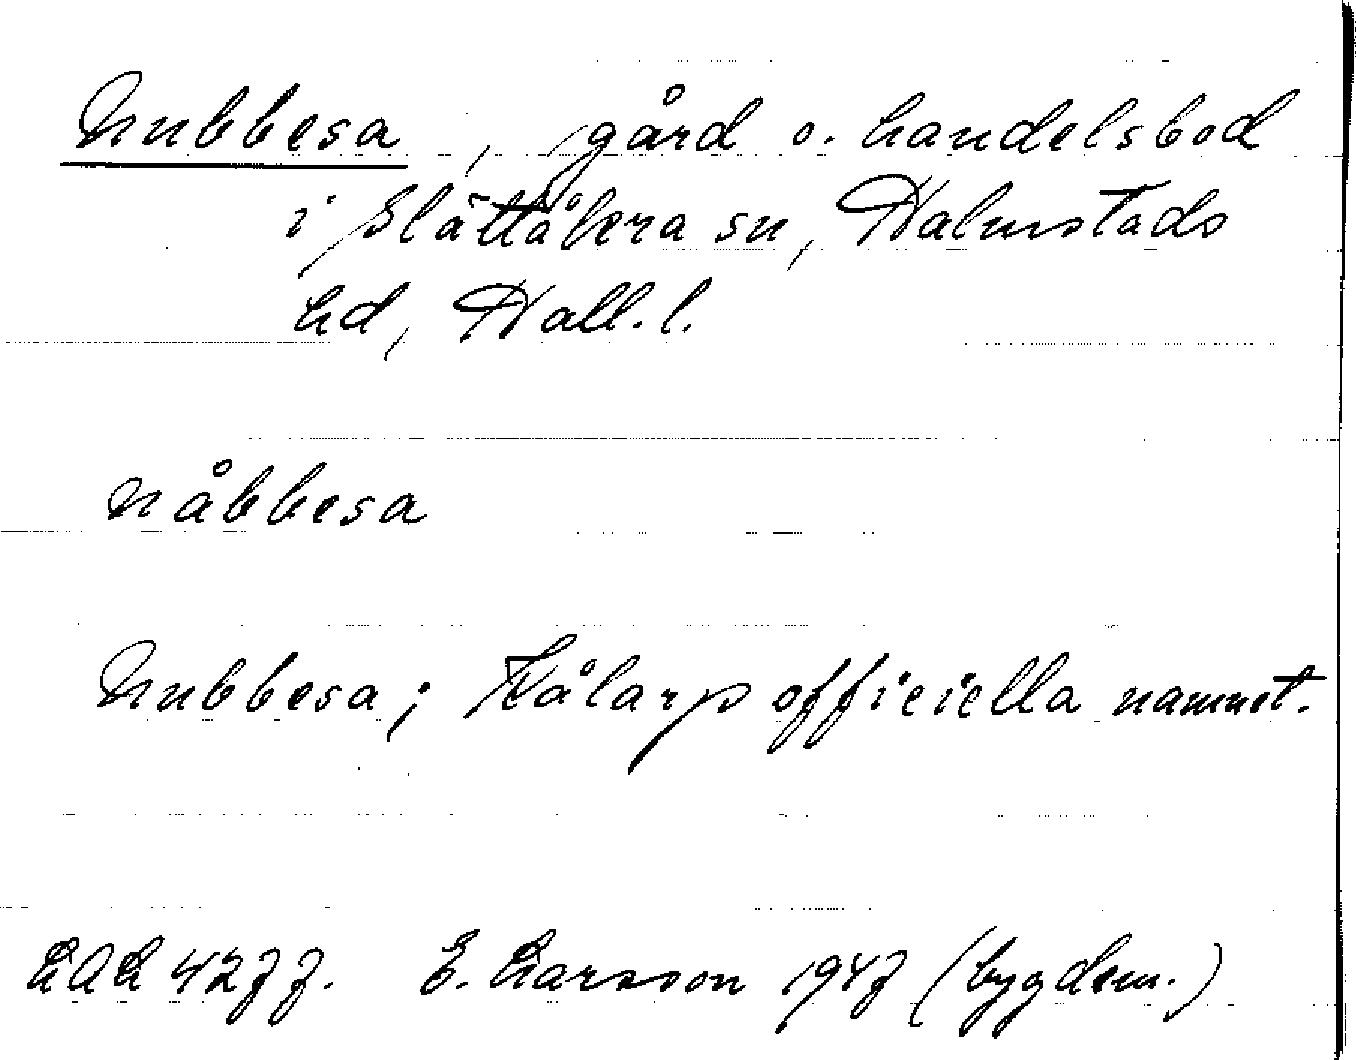 Nubbesa, gård o. handelsbod
i Slättåkra sn, Halmstads
hd, Hall. l.
nåbbesa
Nubbesa; Kålarp officiella namnet.
LAL 4277. E. Larsson 1947 (bygdem.)